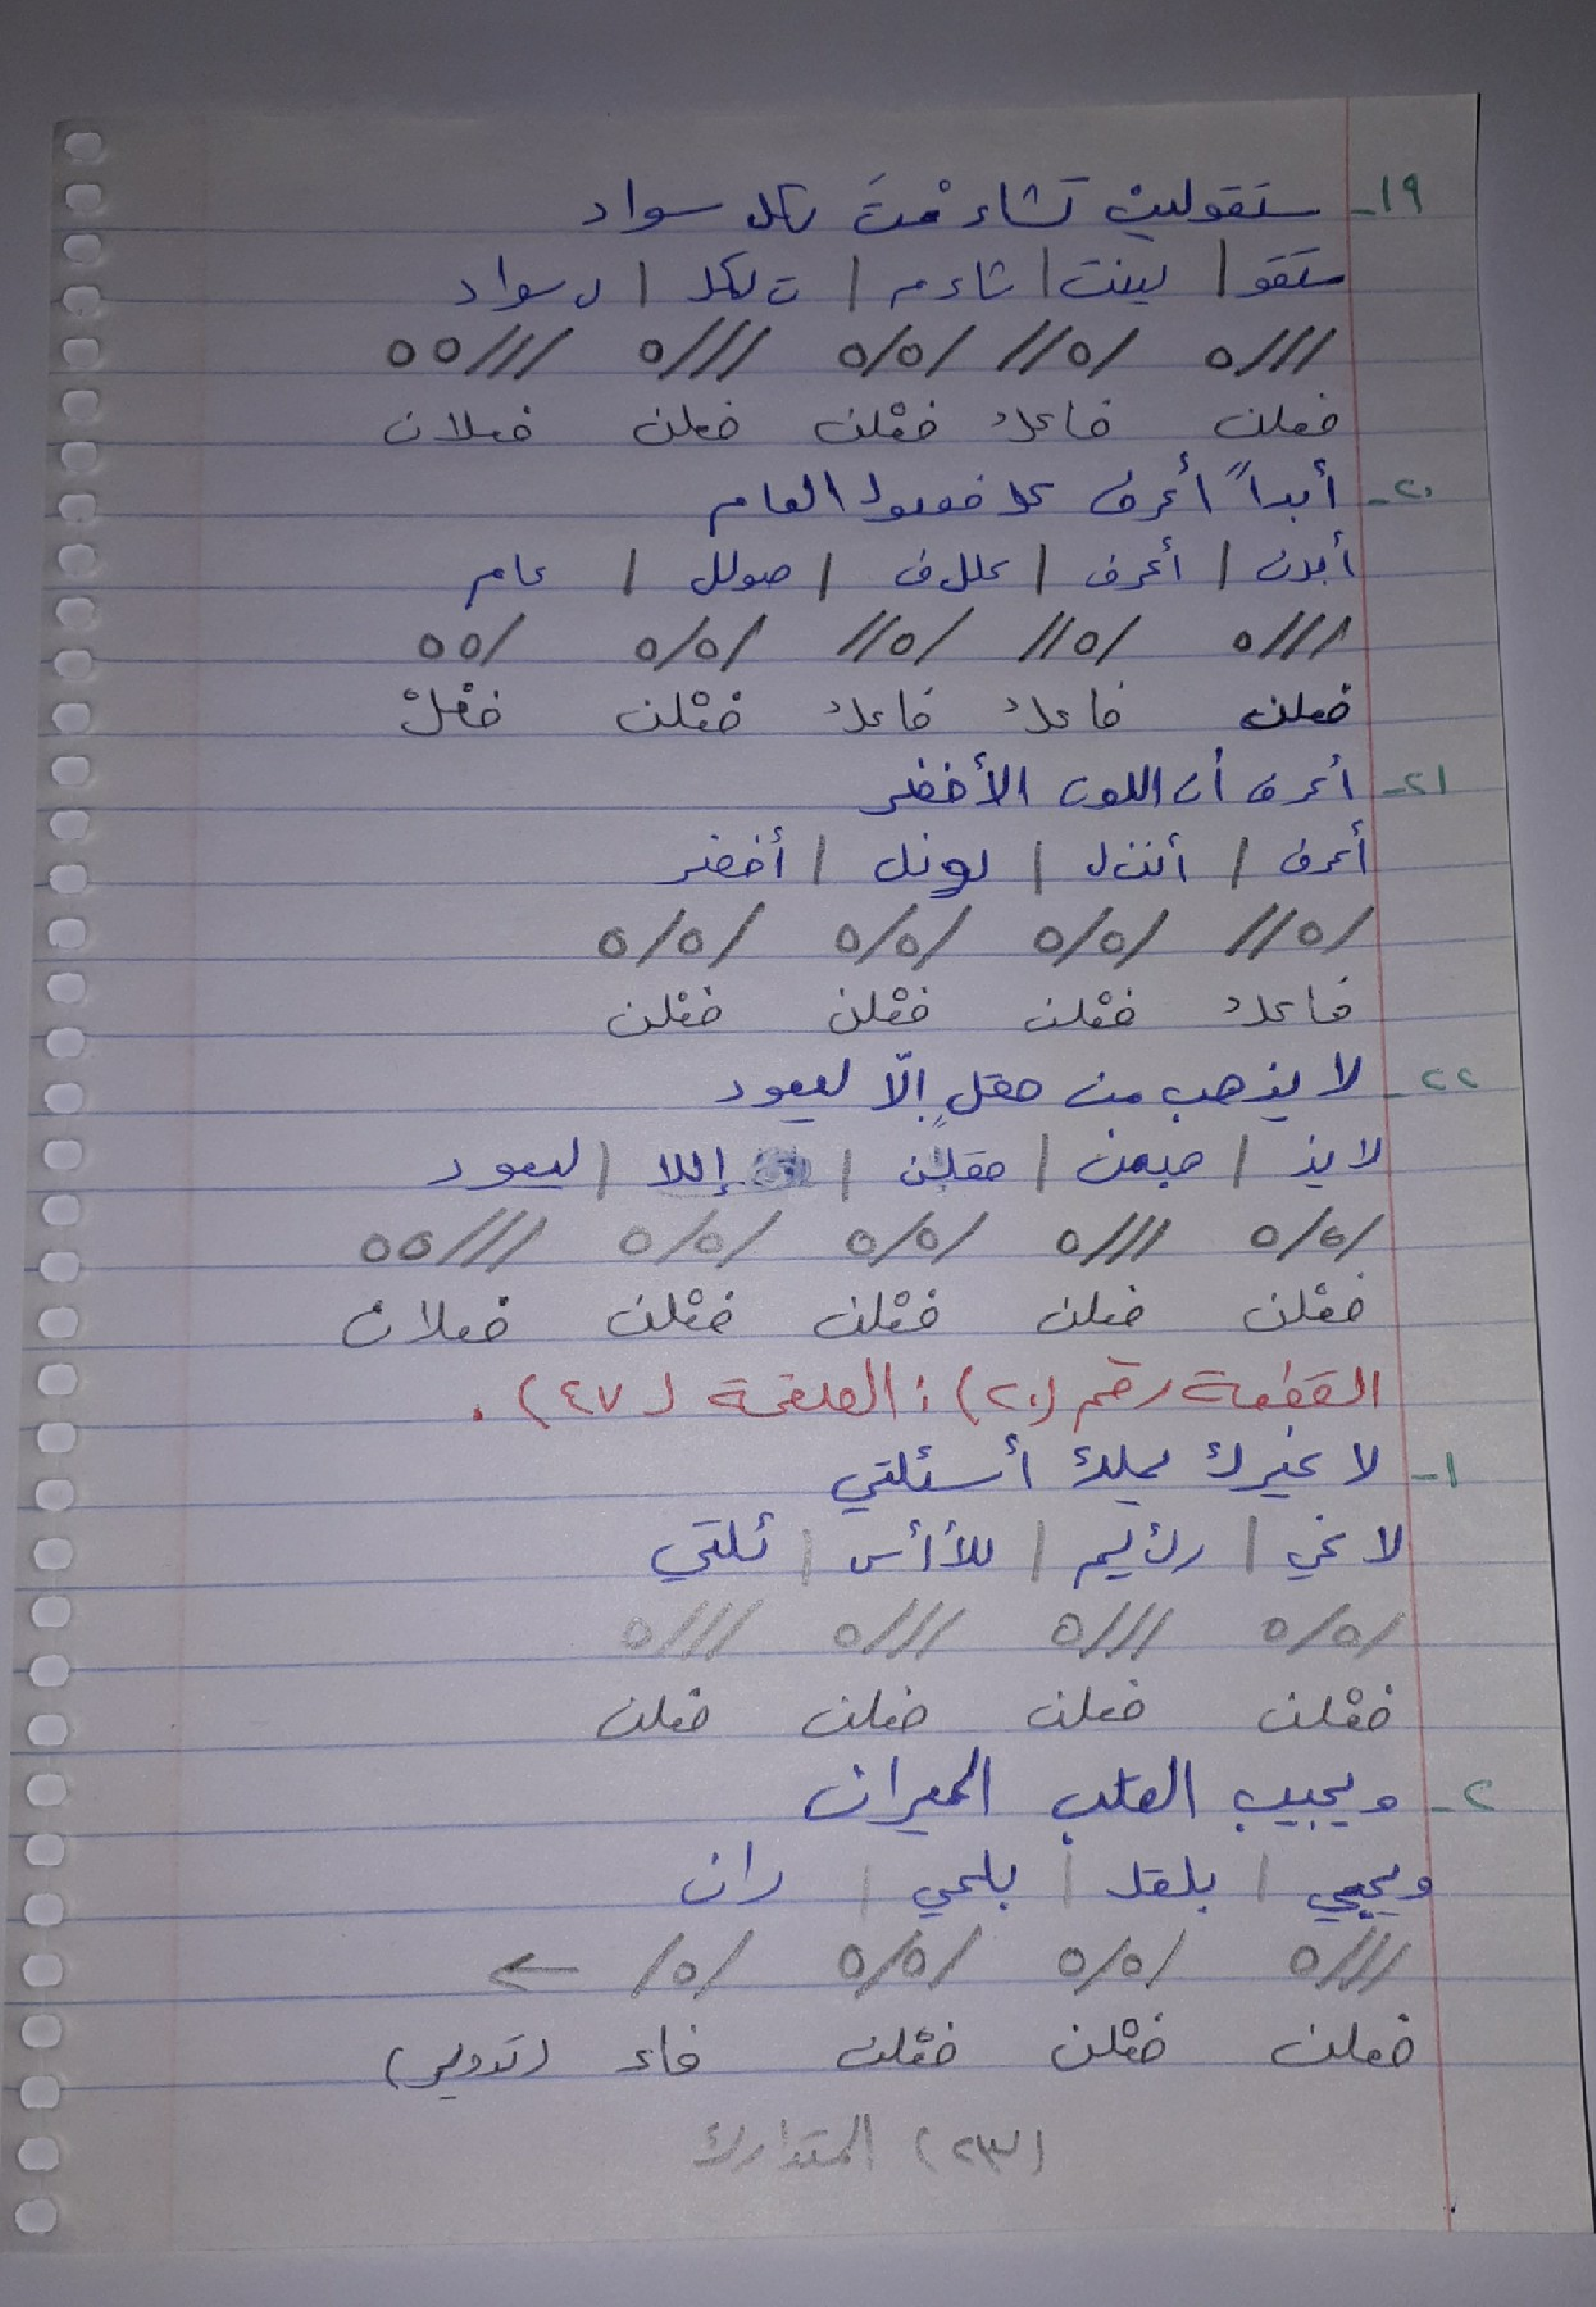 ١٩- ستقولين تشاءمْتَ بكل سواد
ستقو | لينت | شاءم | ت بكل | ل سواد
///ه /ه// /ه/ه ///ه ///هه
فعلن فاعلُ فعْلن فعلن فعلان
٢٠- أبداً أعرف كل فصول العام
أبدن | أعرف | كلل ف | صولل | عام
///ه /ه// /ه// /ه/ه /هه
فعلن فاعلُ فاعلُ فعْلن فعْلْ
٢١- أعرف أن اللون الأخضر
أعرف | أننل | لونل | أخضر
/ه// /ه/ه /ه/ه /ه/ه
فاعلُ فعْلن فعْلن فعْلن
٢٢- لا يذهب من حقلٍ إلّا ليعود
لا يذ | هبمن | حقلن | إللا | ليعود
/ه/ه ///ه /ه/ه /ه/ه ///هه
فعْلن فعلن فعْلن فعْلن فعلان
القطعة رقم (٢٠) : الصفحة (٤٧) .
١- لا غيرك يملك أسئلتي
لا غي | رك يم | لك أس | ئلتي
/ه/ه ///ه ///ه ///ه
فعْلن فعلن فعلن فعلن
٢- ويجيب القلب الحيران
ويجي | بلقل | بلحي | ران
///ه /ه/ه /ه/ه /ه/ ←
فعلن فعْلن فعْلن فاع (تدوير)
(٢٣) المتدارك